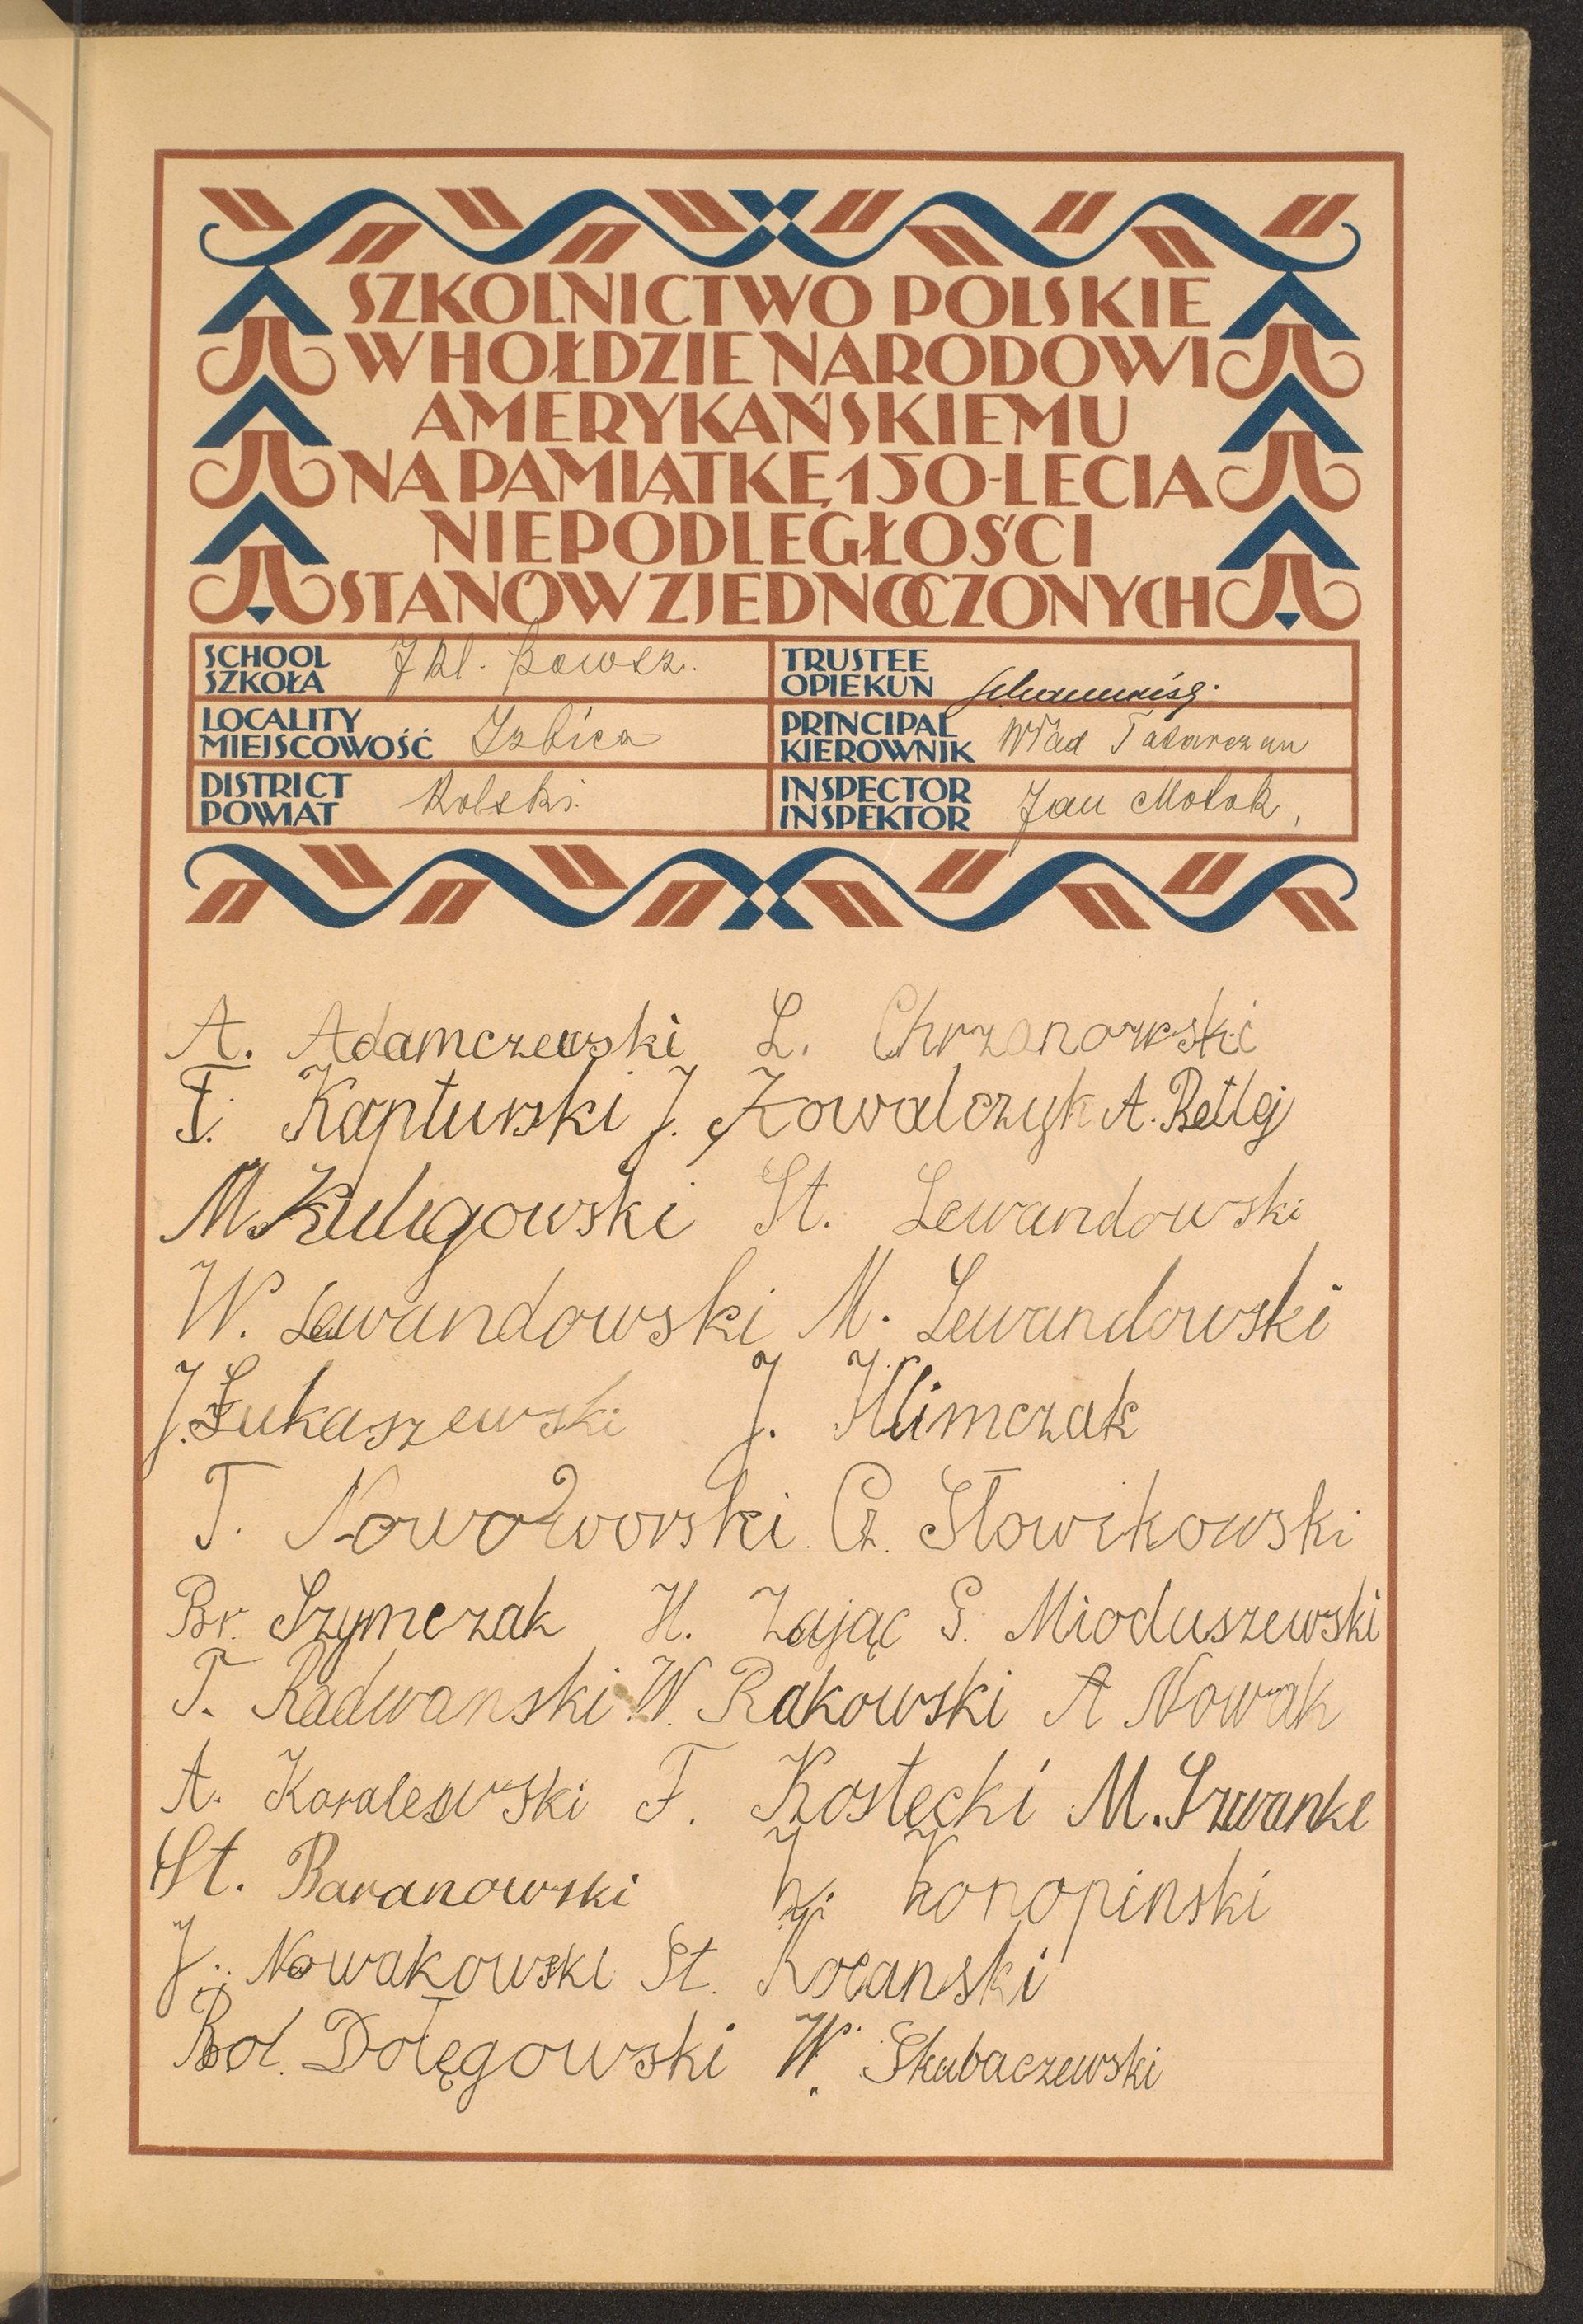 SZKOLNICTWO POLSKIE
W HOŁDZIE NARODOWI
AMERYKAŃSKIEMU
NA PAMIĄTKĘ 150-LECIA
NIEPODLEGŁOŚCI
STANÓW ZJEDNOCZONYCH
SCHOOL
SZKOŁA 7 kl. powsz.
TRUSTEE
OPIEKUN
LOCALITY
MIEJSCOWOŚĆ Izbica
PRINCIPAL
KIEROWNIK Wład Tatarczan
DISTRICT
POWIAT Kolski.
INSPECTOR
INSPEKTOR Jan Motok,
A. Adamczewski L. Chrzanowski
T. Kapturski J. Kowalczyk A. Betlej
M. Kuligowski St. Lewandowski
W. Lewandowski M. Lewandowski
J. Łukaszewski J. Klimczak
T. Nowodworski Cz. Słowikowski
Br. Szymczak H. Zając G. Mioduszewski
T. Radwanski W. Rakowski A Nowak
A. Koralewski F. Kostecki M. Szwanke
St. Baranowski K. Konopinski
J. Nowakowski St. Kocanski
Bol. Dołęgowski W. Skubaczewski